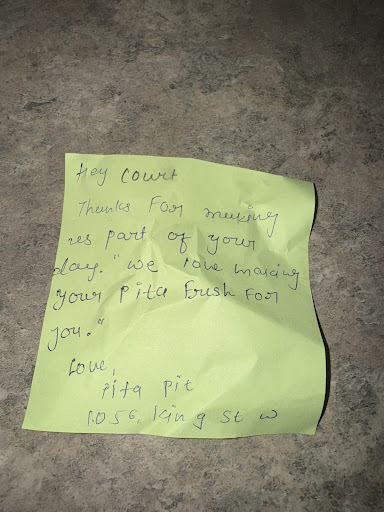 Hey Court
Thanks For making
us part of your
day. "We love making
your pita frush For
you."
Love,
Pita Pit
1056, King St W